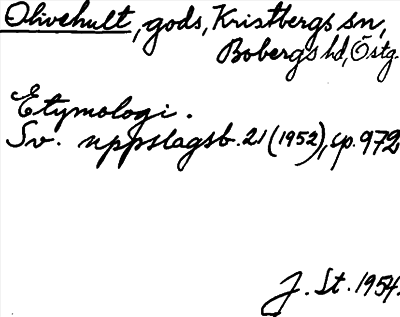 Olivehult, gods, Kristbergs sn,
Bobergs hd, Östg.
Etymologi.
Sv. uppslagsb. 21 (1952), sp. 972
J. St. 1954.